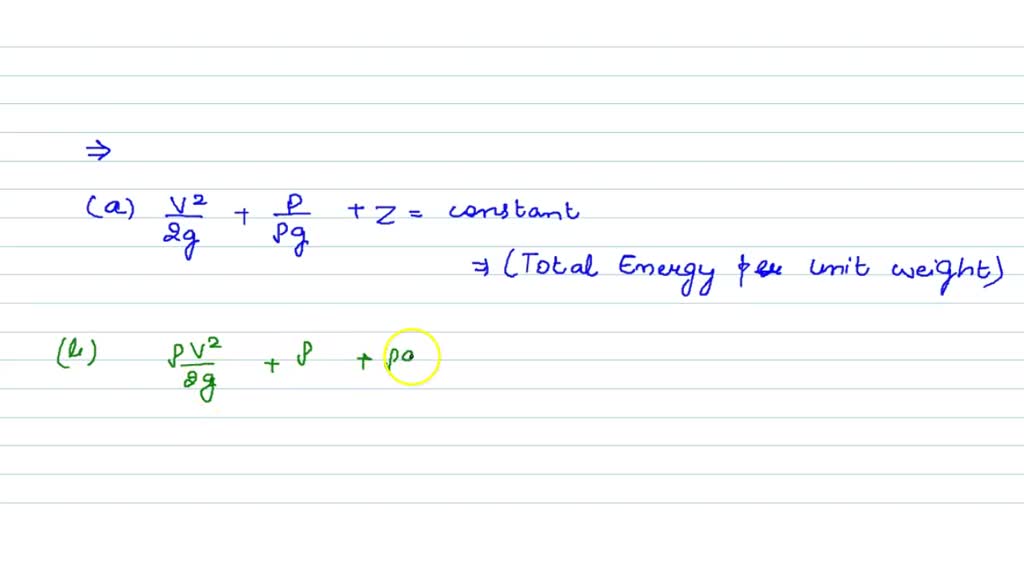 ⇒
(a) V²/2g + P/ρg + Z = constant
⇒ (Total Energy per unit weight)
(b) ρV²/2g + P + ρg